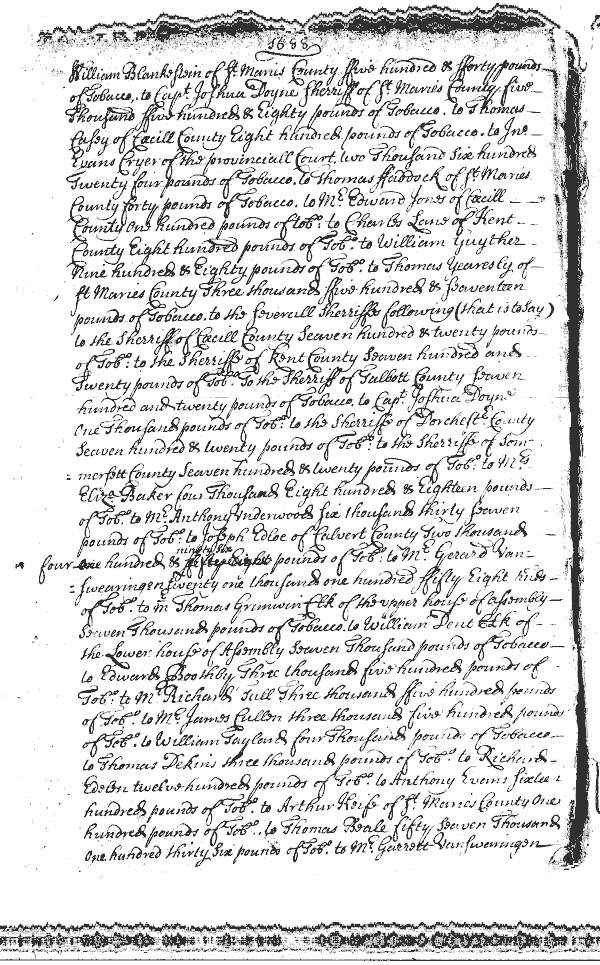 1688
William Blankestein of St. Maries County ffive hundred & fforty pounds
of Tobacco, to Capt Joshua Doyne Sherriff of St Maries County, five
Thousand ffive hundred & Eighty pounds of Tobacco. to Thomas
Casey of Cæcill County Eight hundred pounds of Tobacco. to Jno
Evans Cryer of the provinciall Court, two Thousand Six hundred
Twenty four pounds of Tobacco. to Thomas Haddock of St Maries
County forty pounds of Tobacco. to Mr Edward Jones of Cæcill
County One hundred pounds of tobo: to Charles Lane of Kent
County Eight hundred pounds of Tobo. to William Guyther
Nine hundred & Eighty pounds of Tob. to Thomas Yearesly of
St Maries County Three thousand ffive hundred & Seaventeen
pounds of Tobacco. to the severall Sherriffs following (that is to say)
to the Sherriff of Cæcill County Seaven hundred & twenty pounds
of Tobo: to the Sherriffe of Kent County Seaven hundred and
Twenty pounds of Tobo. To the Sherriff of Talbott County Seaven
hundred and twenty pounds of Tobacco, to Capt Joshua Doyne
One Thousand pounds of Tobo: to the Sherriffe of Dorchestr County
Seaven hundred & twenty pounds of Tobo: to the Sherriffe of Som=
=mersett County Seaven hundred & twenty pounds of Tobo. to Mrs
Eliza Baker four Thousand Eight hundred & Eighteen pounds
of Tobo. to Mr Anthony Underwood Six thousand thirty Seaven
pounds of Tobo. to Joseph Edloe of Calvert County Two thousand
four One hundred & ninety Six fifty Eight pounds of Tobo. to Mr. Gerard Van=
=swearingen Twenty one thousand one hundred ffifty Eight
of Tobo. to Mr Thomas Grunwin Clk of the upper house of Assembly
Seaven Thousand pounds of Tobacco. to William Dent Clk of
the Lower house of Assembly Seaven Thousand pounds of Tobacco
to Edward Boothby Three thousand five hundred pounds of
Tobo. to Mr Richard Tull Three thousand ffive hundred pounds
of Tobo. to Mr. James Cullen three thousand five hundred pounds
of Tobo. to William Taylard four Thousand pounds of Tobacco
to Thomas Dekins three thousand pounds of Tobo. to Richard
Edelen twelve hundred pounds of Tobo. to Anthony Evans Sixteen
hundred pounds of Tobo. to Arthur Keife of St. Maries County One
hundred pounds of Tobo. to Thomas Beale fifty Seaven Thousand
One hundred thirty Six pounds of Tobo. to Mr. Garrett Vanswearingen